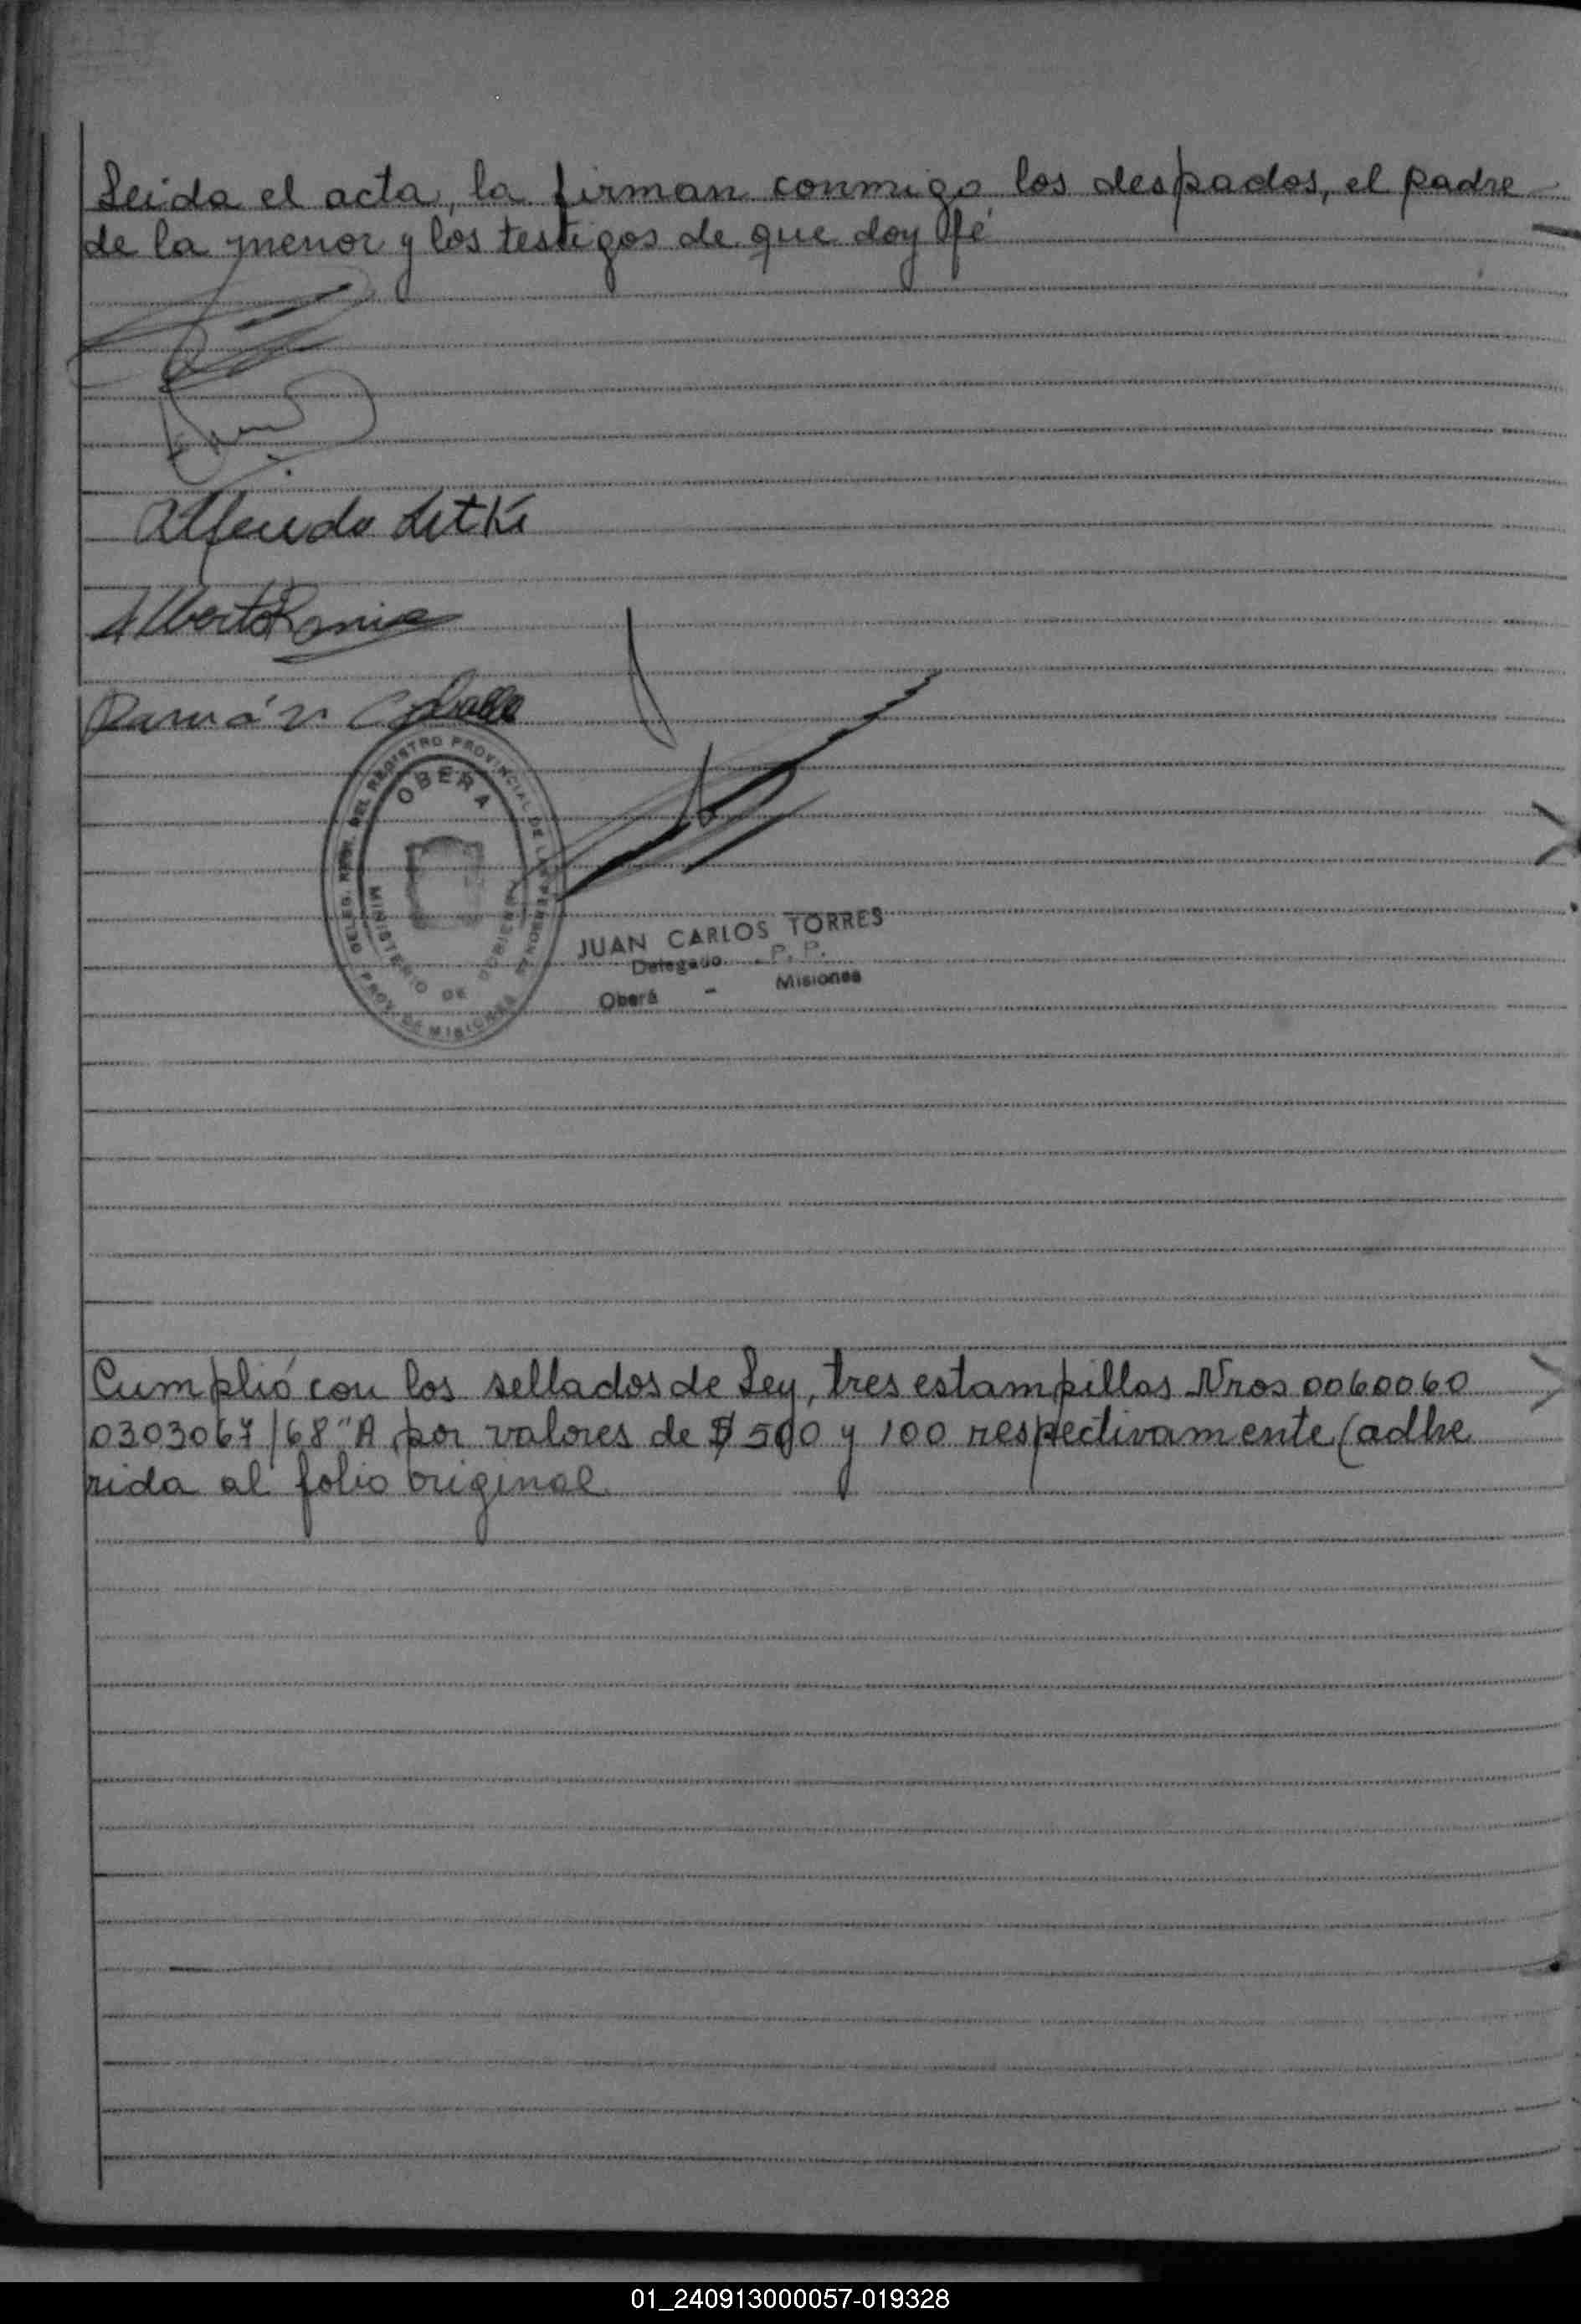 Leida el acta, la firman conmigo los despados, el padre
de la menor y los testigos de que doy fé
Alfredo Litke
Alberto
Ramón
DELEG. DEL REGISTRO PROVINCIAL DE LAS PERSONAS
OBERA
MINISTERIO DE GOBIERNO
PROV. DE MISIONES
JUAN CARLOS TORRES
Delegado P. P.
Oberá - Misiones
Cumplió con los sellados de Ley, tres estampillas Nros 0060060
0303067/68 "A por valores de $ 500 y 100 respectivamente (adhe
rida al folio original
01_240913000057-019328